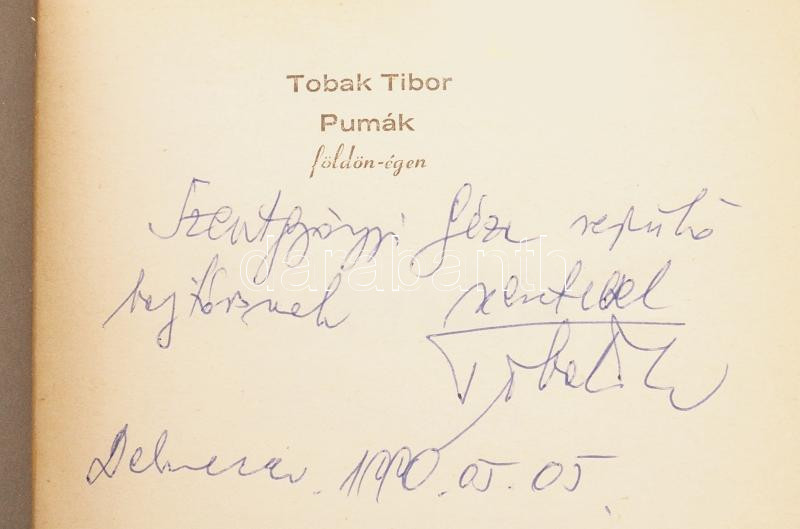 Tobak Tibor
Pumák
földön-égen
Szentgyörgyi Géza repülő
bajtársnak szeretettel
Tobak Tibor
Debrecen. 1990. 05. 05.
darabanth